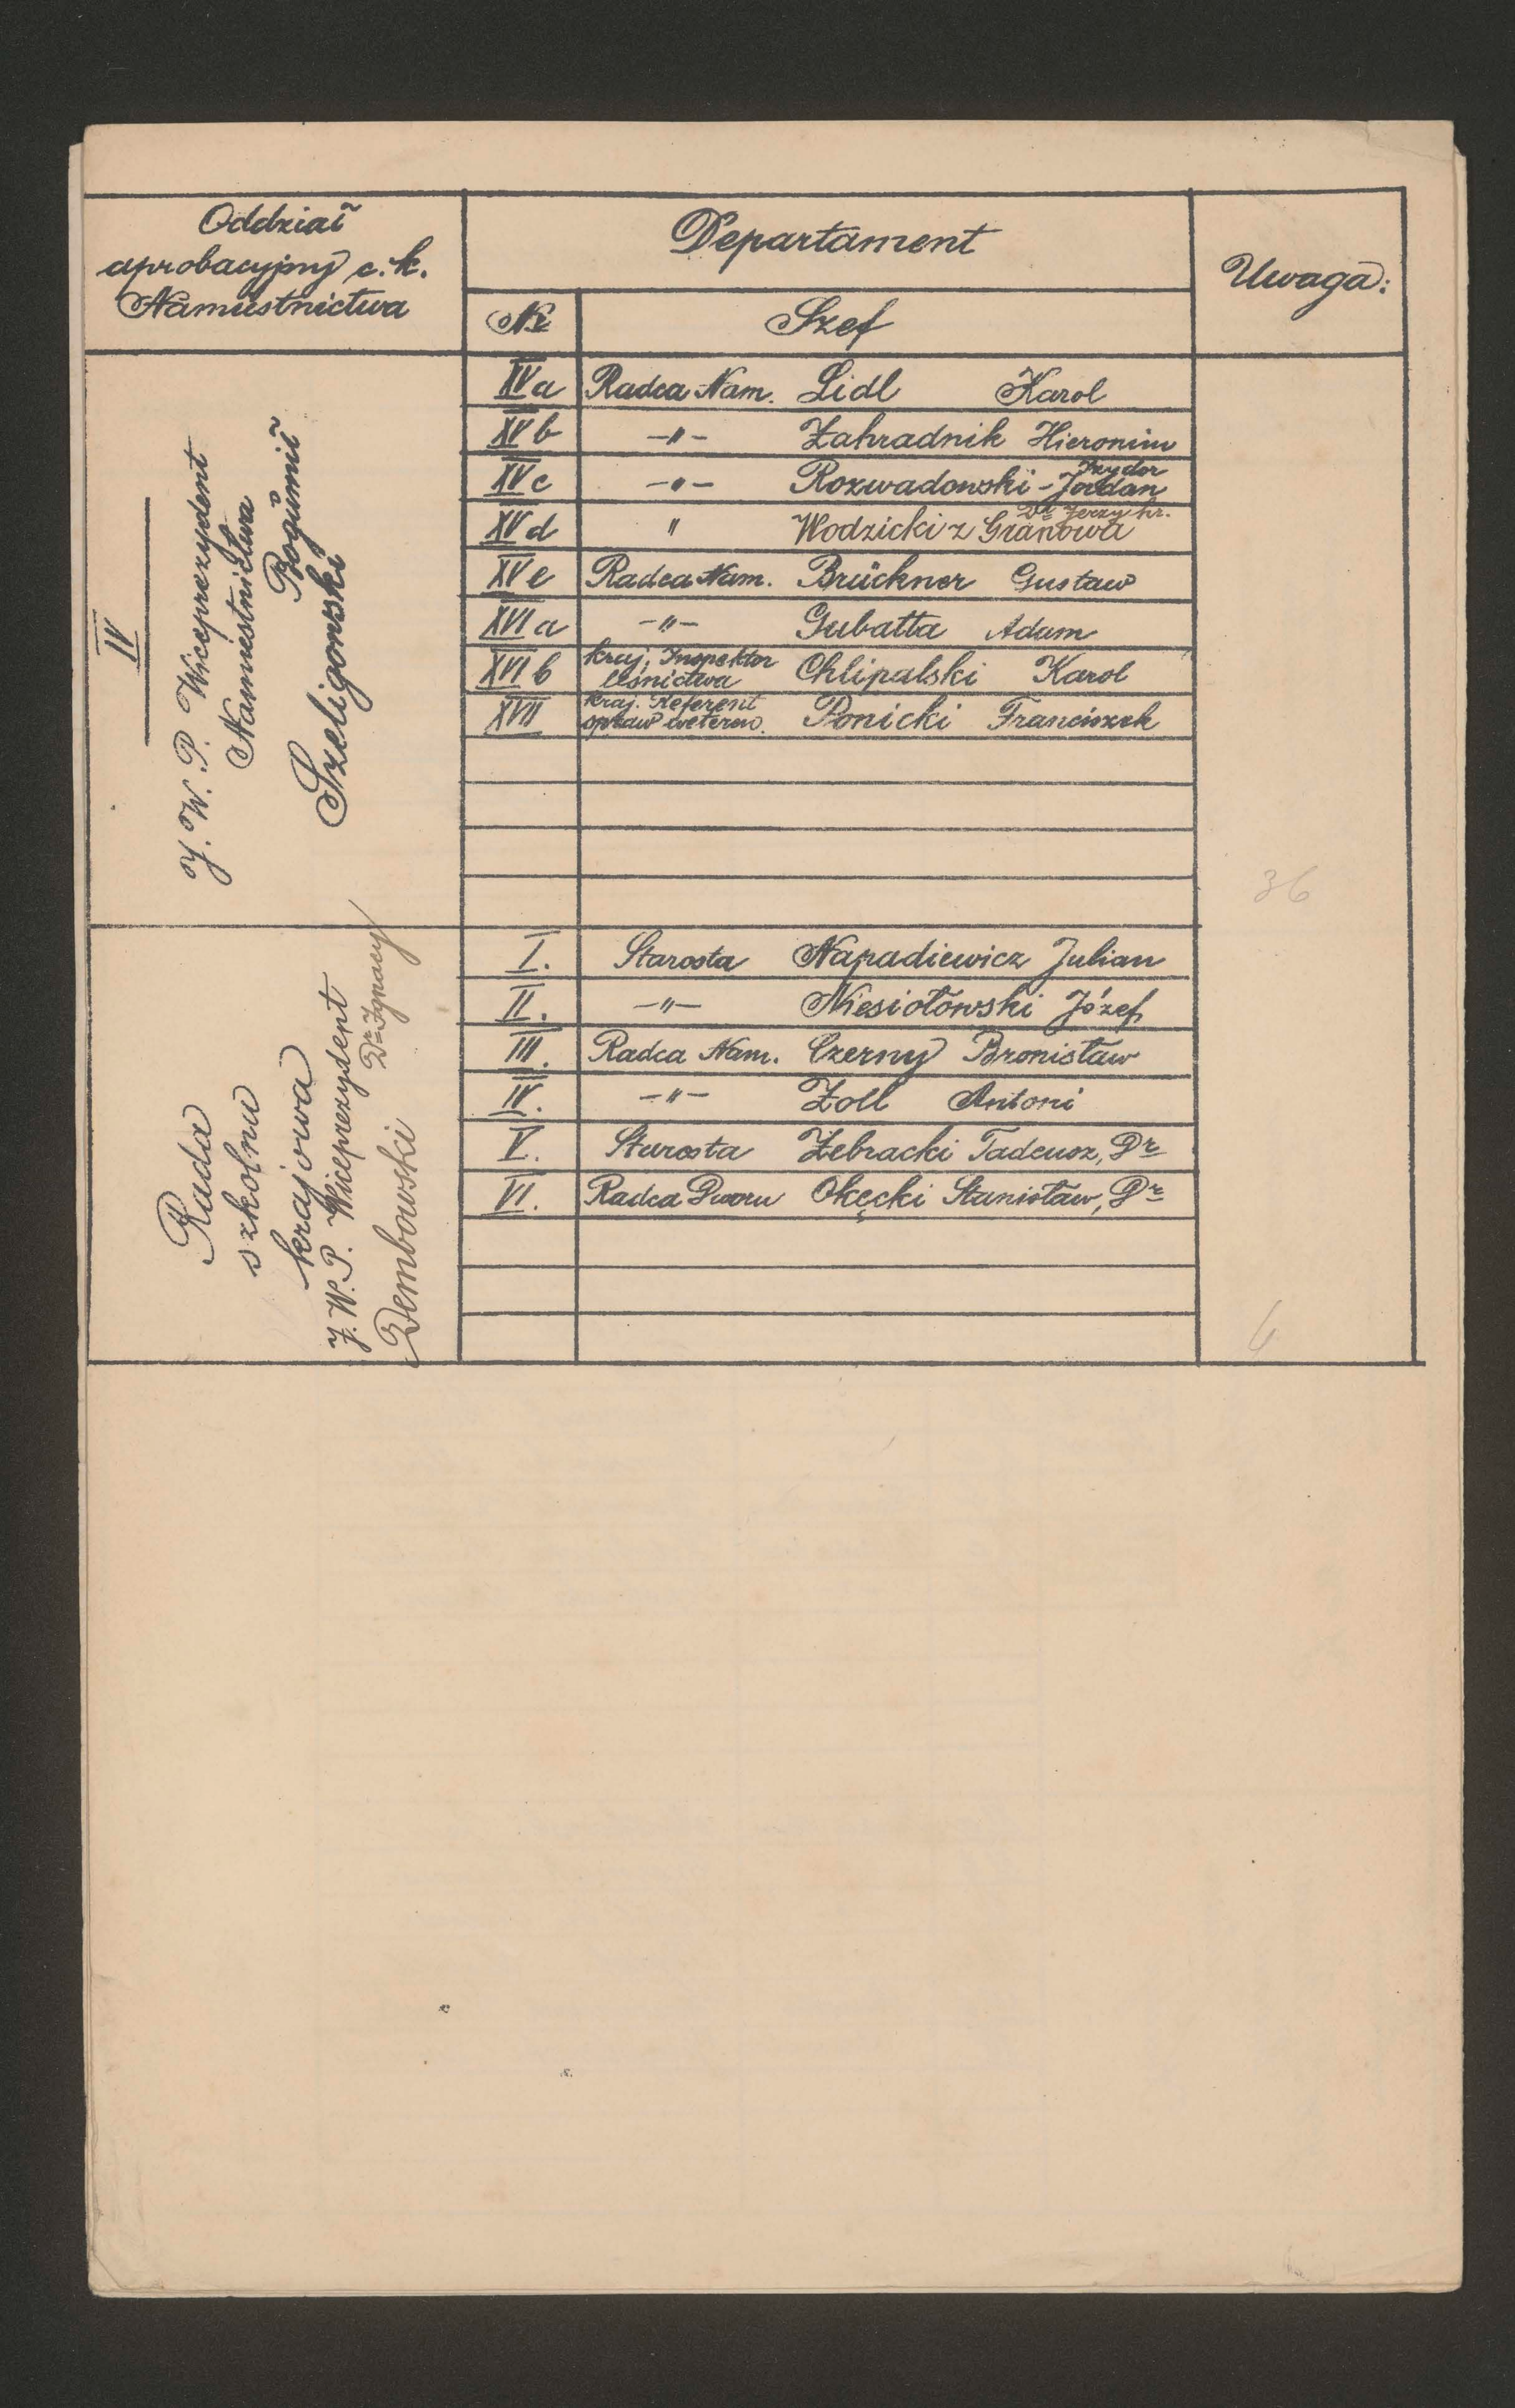 Oddział
aprobacyjny c. k.
Namiestnictwa
Departament
Uwaga:
Nr
Szef
IV
J. W. P. Wiceprezydent
Namiestnictwa
Bogumił
Szeligowski
XVa Radca Nam. Lidl Karol
XVb -"- Zahradnik Hieronim
XVc -"- Rozwadowski-Jordan Izydor
XVd " Wodzicki z Granowa Dr Jerzy hr.
XVe Radca Nam. Brückner Gustaw
XVIa -"- Gubatta Adam
XVIb kraj. Inspektor
leśnictwa Chlipalski Karol
XVII kraj. Referent
spraw weteren. Ponicki Franciszek
36
Rada
szkolna
krajowa
J. W. P. Wiceprezydent
Dembowski Dr Ignacy
I. Starosta Napadiewicz Julian
II. -"- Niesiołowski Józef
III. Radca Nam. Czerny Bronisław
IV. -"- Zoll Antoni
V. Starosta Żebracki Tadeusz, Dr
VI. Radca Dworu Okęcki Stanisław, Dr
6